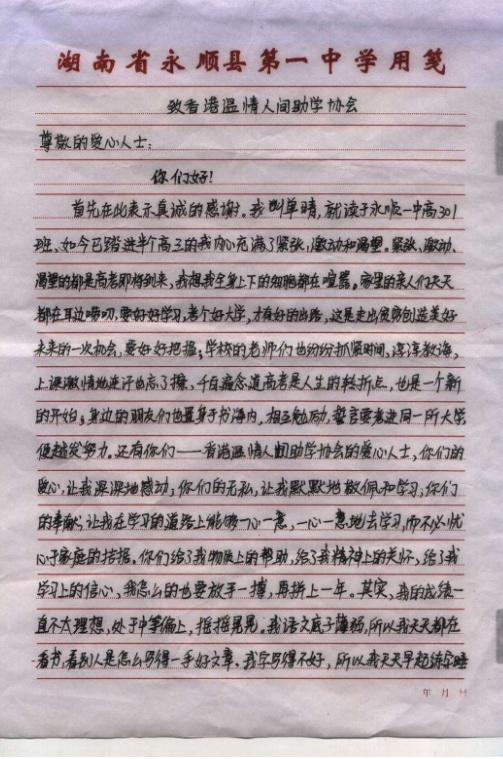 湖南省永顺县第一中学用笺
致香港温情人间助学协会
尊敬的爱心人士：
你们好！
首先在此表示真诚的感谢。我叫单晴，就读于永顺一中高301
班、如今已踏进半个高三的我内心充满了紧张，激动和渴望。紧张、激动、
渴望的都是高考即将到来，我想我全身上下的细胞都在喧嚣。家里的亲人们天天
都在耳边唠叨，要好好学习，考个好大学，才有好的出路，这是走出贫穷创造美好
未来的一次机会，要好好把握；学校的老师们也纷纷抓紧时间，谆谆教诲，
上课激情地连汗也忘了擦，千百遍念道高考是人生的转折点，也是一个新
的开始；身边的朋友们也置身于书海内，相互勉励，誓言要考进同一所大学
便越发努力。还有你们——香港温情人间助学协会的爱心人士，你们的
爱心，让我深深地感动；你们的无私，让我默默地敬佩和学习；你们
的奉献，让我在学习的道路上能够一心一意，一心一意地去学习，而不必忧
心于家庭的拮据。你们给了我物质上的帮助，给了我精神上的关怀，给了我
学习上的信心，我怎么的也要放手一搏，再拼上一年。其实，我的成绩一
直不太理想，处于中等偏上，摇摇晃晃。我语文底子薄弱，所以我天天都在
看书，看别人是怎么写得一手好文章。我字写得不好，所以我天天早起练字晚
年 月 日